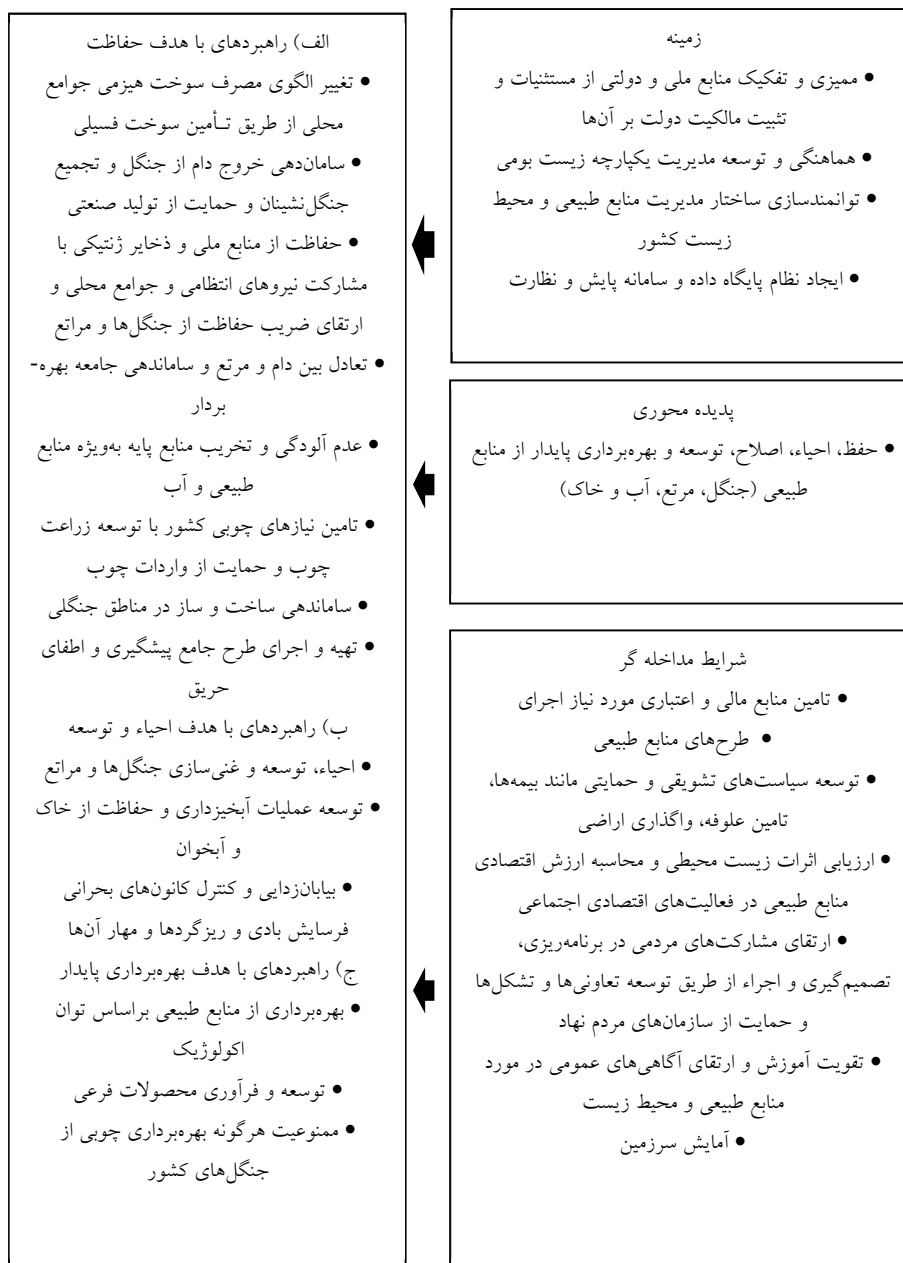 زمینه
● ممیزی و تفکیک منابع ملی و دولتی از مستثنیات و
تثبیت مالکیت دولت بر آن‌ها
● هماهنگی و توسعه مدیریت یکپارچه زیست بومی
● توانمندسازی ساختار مدیریت منابع طبیعی و محیط
زیست کشور
● ایجاد نظام پایگاه داده و سامانه پایش و نظارت
پدیده محوری
● حفظ، احیاء، اصلاح، توسعه و بهره‌برداری پایدار از منابع
طبیعی (جنگل، مرتع، آب و خاک)
شرایط مداخله گر
● تامین منابع مالی و اعتباری مورد نیاز اجرای
● طرح‌های منابع طبیعی
● توسعه سیاست‌های تشویقی و حمایتی مانند بیمه‌ها،
تامین علوفه، واگذاری اراضی
● ارزیابی اثرات زیست محیطی و محاسبه ارزش اقتصادی
منابع طبیعی در فعالیت‌های اقتصادی اجتماعی
● ارتقای مشارکت‌های مردمی در برنامه‌ریزی،
تصمیم‌گیری و اجراء از طریق توسعه تعاونی‌ها و تشکل‌ها
و حمایت از سازمان‌های مردم نهاد
● تقویت آموزش و ارتقای آگاهی‌های عمومی در مورد
منابع طبیعی و محیط زیست
● آمایش سرزمین
الف) راهبردهای با هدف حفاظت
● تغییر الگوی مصرف سوخت هیزمی جوامع
محلی از طریق تـأمین سوخت فسیلی
● سامان‌دهی خروج دام از جنگل و تجمیع
جنگل‌نشینان و حمایت از تولید صنعتی
● حفاظت از منابع ملی و ذخایر ژنتیکی با
مشارکت نیروهای انتظامی و جوامع محلی و
ارتقای ضریب حفاظت از جنگل‌ها و مراتع
● تعادل بین دام و مرتع و ساماندهی جامعه بهره-
بردار
● عدم آلودگی و تخریب منابع پایه به‌ویژه منابع
طبیعی و آب
● تامین نیازهای چوبی کشور با توسعه زراعت
چوب و حمایت از واردات چوب
● ساماندهی ساخت و ساز در مناطق جنگلی
● تهیه و اجرای طرح جامع پیشگیری و اطفای
حریق
ب) راهبردهای با هدف احیاء و توسعه
● احیاء، توسعه و غنی‌سازی جنگل‌ها و مراتع
● توسعه عملیات آبخیزداری و حفاظت از خاک
و آبخوان
● بیابان‌زدایی و کنترل کانون‌های بحرانی
فرسایش بادی و ریزگردها و مهار آن‌ها
ج) راهبردهای با هدف بهره‌برداری پایدار
● بهره‌برداری از منابع طبیعی براساس توان
اکولوژیک
● توسعه و فرآوری محصولات فرعی
● ممنوعیت هرگونه بهره‌برداری چوبی از
جنگل‌های کشور